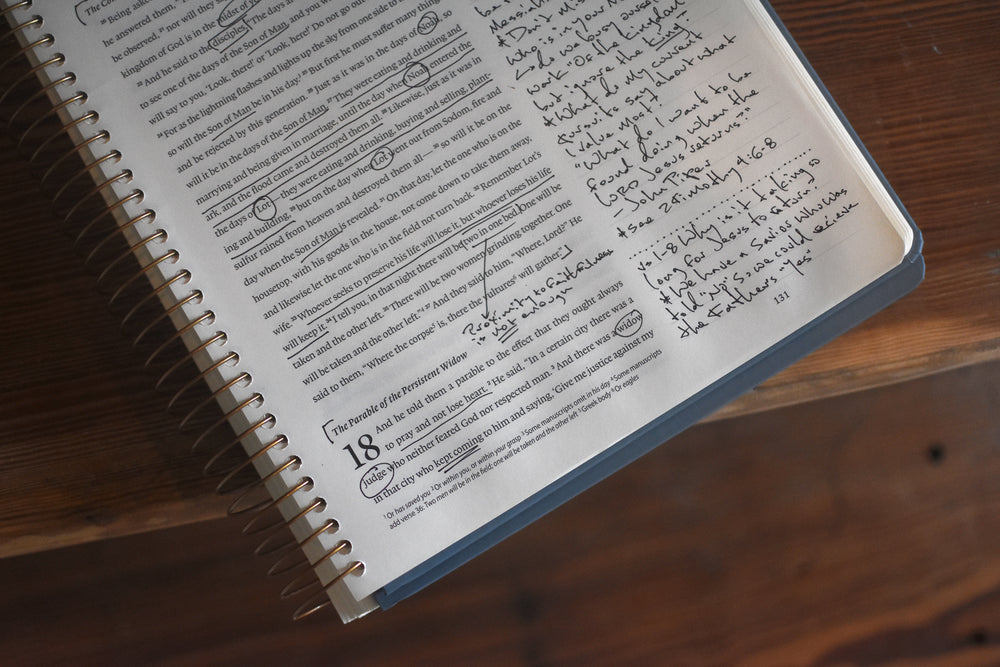 [The Co
20 Being aske
he answered them, "T
be observed, 21 nor will they s
kingdom of God is in the midst of
22 And he said to the disciples, "The days are
to see one of the days of the Son of Man, and you w
will say to you, 'Look, there!' or 'Look, here!' Do not go out
24 For as the lightning flashes and lights up the sky from one side to
so will the Son of Man be in his day. 25 But first he must suffer many thing
and be rejected by this generation. 26 Just as it was in the days of Noah, so
will it be in the days of the Son of Man. 27 They were eating and drinking and
marrying and being given in marriage, until the day when Noah entered the
ark, and the flood came and destroyed them all. 28 Likewise, just as it was in
the days of Lot—they were eating and drinking, buying and selling, plant-
ing and building, 29 but on the day when Lot went out from Sodom, fire and
sulfur rained from heaven and destroyed them all— 30 so will it be on the
day when the Son of Man is revealed. 31 On that day, let the one who is on the
housetop, with his goods in the house, not come down to take them away,
and likewise let the one who is in the field not turn back. 32 Remember Lot's
wife. 33 Whoever seeks to preserve his life will lose it, but whoever loses his life
will keep it. 34 I tell you, in that night there will be two in one bed. One will be
taken and the other left. 35 There will be two women grinding together. One
will be taken and the other left." 37 And they said to him, "Where, Lord?" He
said to them, "Where the corpse is, there the vultures will gather."]
Proximity to faithfulness
is not enough
[The Parable of the Persistent Widow
18 And he told them a parable to the effect that they ought always
to pray and not lose heart. 2 He said, "In a certain city there was a
judge who neither feared God nor respected man. 3 And there was a widow
in that city who kept coming to him and saying, 'Give me justice against my
1 Or has saved you 2 Or within you, or within your grasp 3 Some manuscripts omit in his day 4 Some manuscripts
add verse 36: Two men will be in the field; one will be taken and the other left 5 Greek body 6 Or eagles
be
Messiah
* Don't mis
who is in your m
→ do we busy ourse
want "of the kingdom"
but ignore the king
* What do my current
pursuits say about what
I value most?
"What do I want to be
found doing when the
LORD Jesus returns?"
- John Piper
* see 2 Timothy 4:6-8
vs 1-8 Why is it taking so
long for Jesus to return?
* We have a Savior who was
told "No" so we could receive
the Father's "Yes"
131